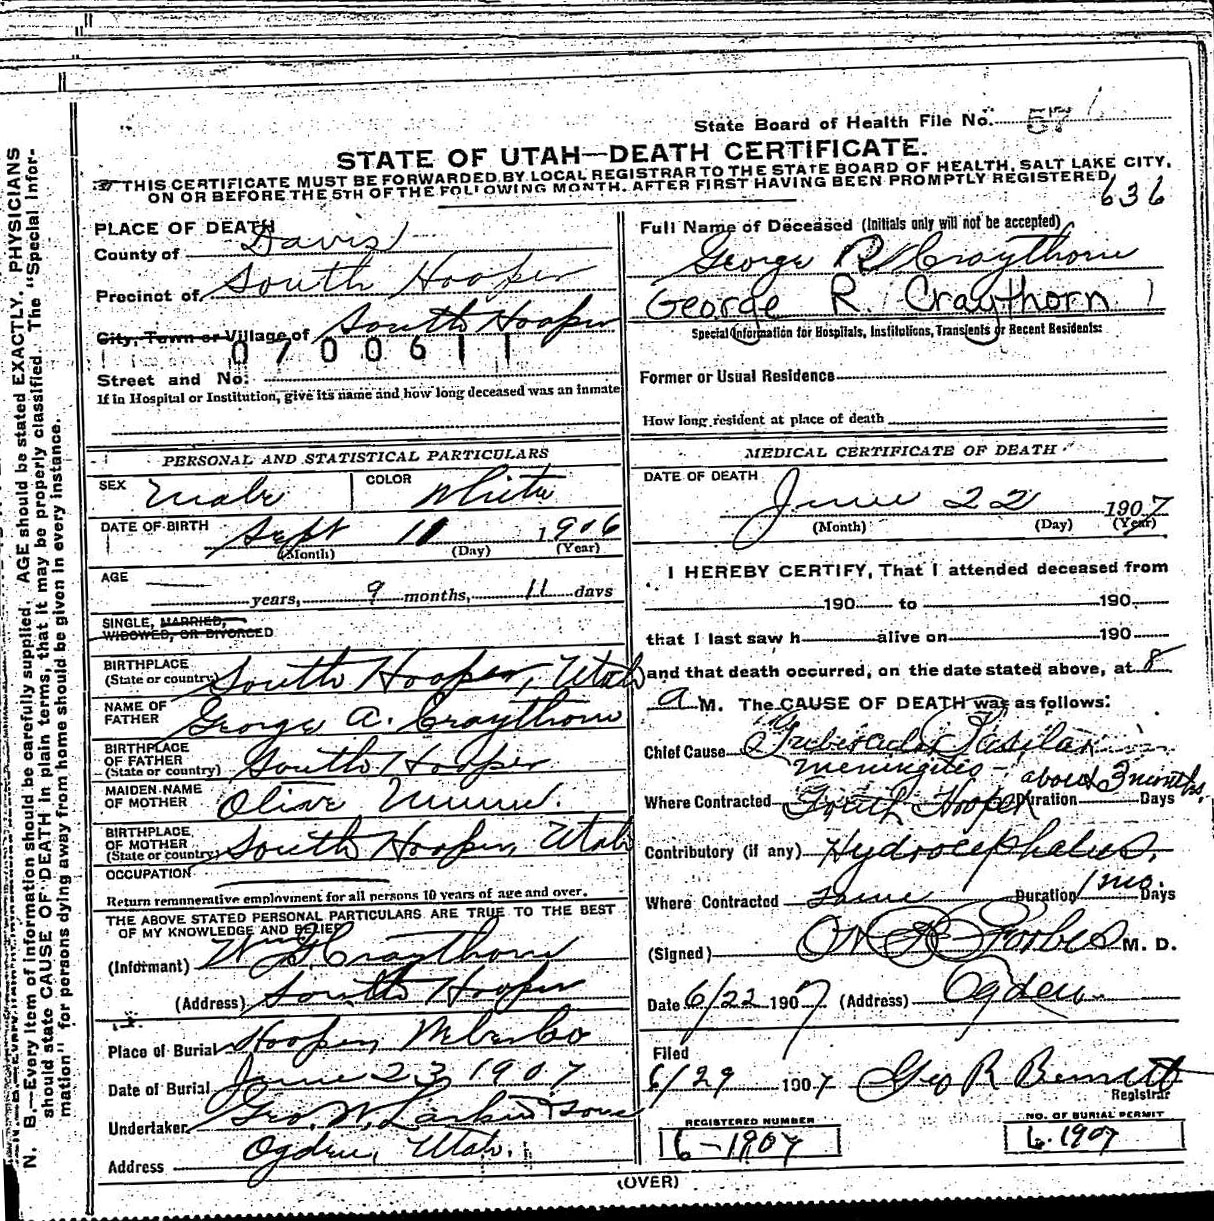 State Board of Health File No. 57
STATE OF UTAH—DEATH CERTIFICATE.
THIS CERTIFICATE MUST BE FORWARDED BY LOCAL REGISTRAR TO THE STATE BOARD OF HEALTH, SALT LAKE CITY,
ON OR BEFORE THE 5TH OF THE FOLLOWING MONTH. AFTER FIRST HAVING BEEN PROMPTLY REGISTERED
636
PLACE OF DEATH
County of Davis
Precinct of South Hooper
City, Town or Village of South Hooper
0700611
Street and No.
If in Hospital or Institution, give its name and how long deceased was an inmate
Full Name of Deceased (Initials only will not be accepted)
George R Craythorn
George R. Craythorn
Special Information for Hospitals, Institutions, Transients or Recent Residents:
Former or Usual Residence
How long resident at place of death
PERSONAL AND STATISTICAL PARTICULARS
SEX Male COLOR White
DATE OF BIRTH Sept 11 1906
(Month) (Day) (Year)
AGE
years, 9 months, 11 days
SINGLE, MARRIED,
WIDOWED, OR DIVORCED
BIRTHPLACE
(State or country) South Hooper, Utah
NAME OF
FATHER George A. Craythorn
BIRTHPLACE
OF FATHER
(State or country) South Hooper
MAIDEN NAME
OF MOTHER Olive
BIRTHPLACE
OF MOTHER
(State or country) South Hooper, Utah
OCCUPATION
Return remunerative employment for all persons 10 years of age and over.
THE ABOVE STATED PERSONAL PARTICULARS ARE TRUE TO THE BEST
OF MY KNOWLEDGE AND BELIEF
(Informant) Wm Craythorn
(Address) South Hooper
Place of Burial Hooper, Weber Co
Date of Burial June 23, 1907
Undertaker Geo. W. Larkin & Sons
Address Ogden, Utah.
MEDICAL CERTIFICATE OF DEATH
DATE OF DEATH
June 22 1907
(Month) (Day) (Year)
I HEREBY CERTIFY, That I attended deceased from
190 to 190
that I last saw h alive on 190
and that death occurred, on the date stated above, at 8
a M. The CAUSE OF DEATH was as follows:
Chief Cause Tubercular Basilar
meningitis - about 3 months
Where Contracted South Hooper Duration Days
Contributory (if any) Hydrocephalus.
Where Contracted Same Duration 1 mo. Days
(Signed) Forbes M. D.
Date 6/22 1907 (Address) Ogden
Filed
6/29 1907 Geo R Bennett
Registrar
REGISTERED NUMBER
6-1907
NO. OF BURIAL PERMIT
6-1907
(OVER)
N. B.—Every item of information should be carefully supplied. AGE should be stated EXACTLY. PHYSICIANS
should state CAUSE OF DEATH in plain terms, that it may be properly classified. The "Special Infor-
mation" for persons dying away from home should be given in every instance.